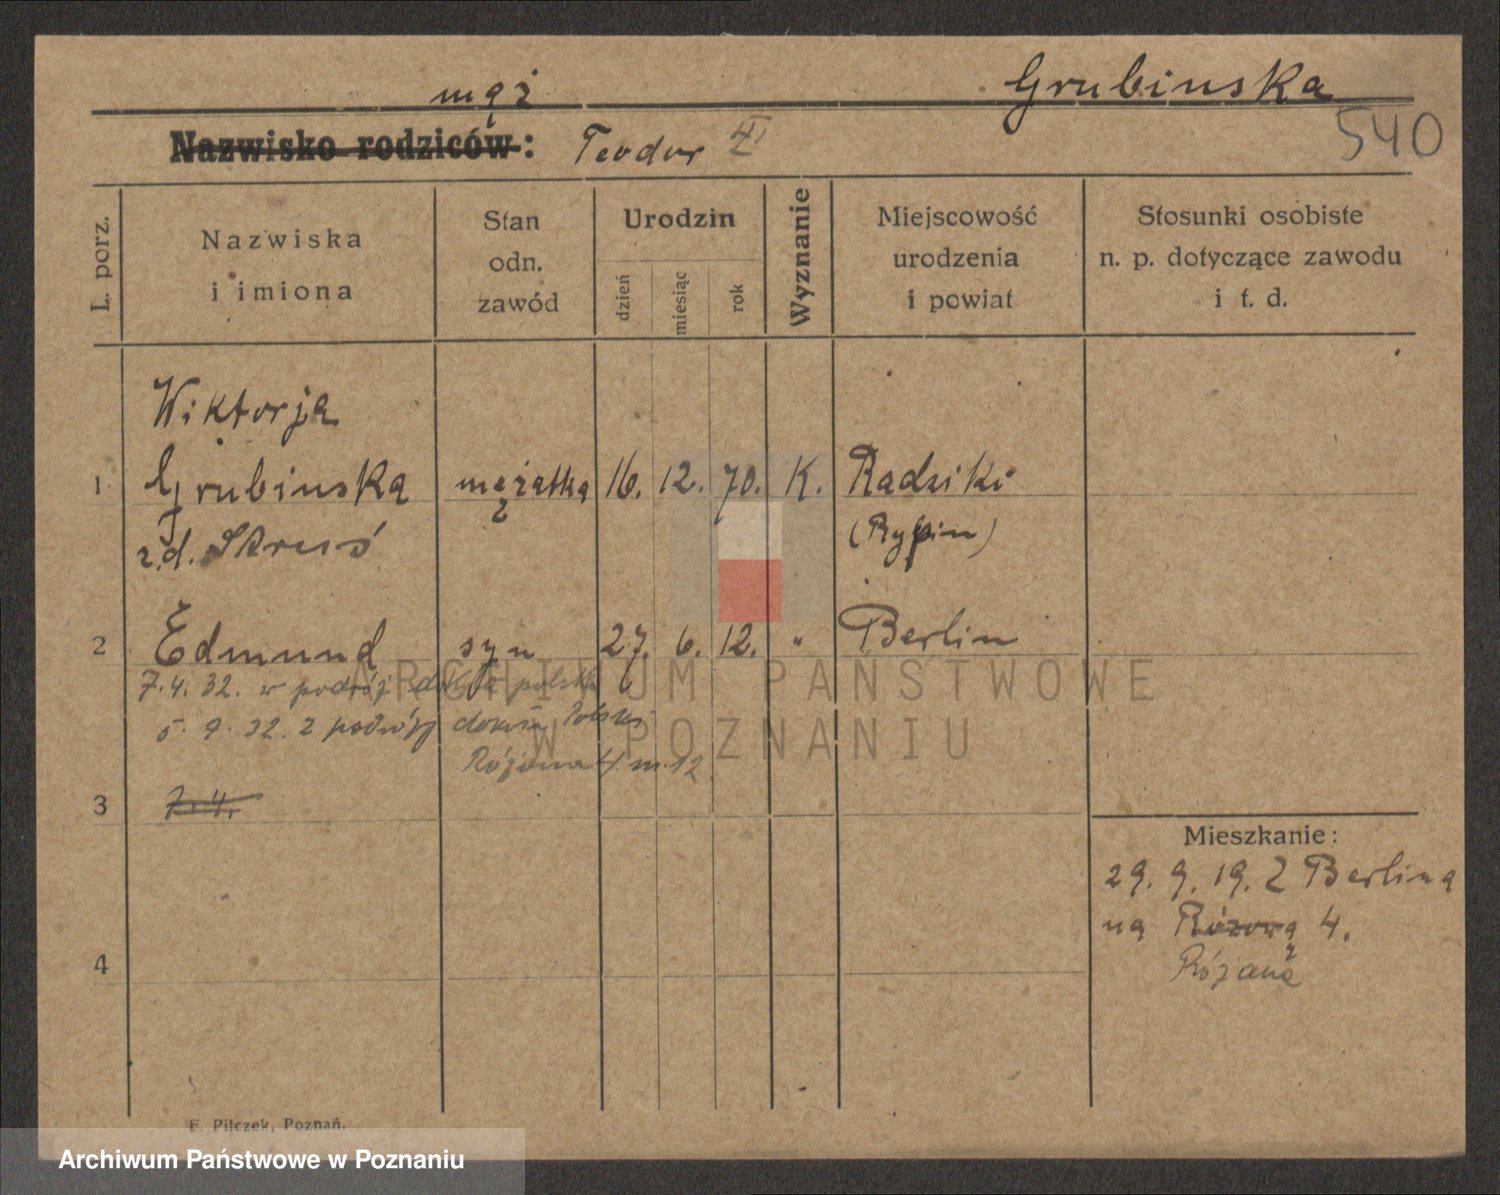 Grubinska
mąż
540
Nazwisko rodziców: Teodor II
L. porz.
Nazwiska
i imiona
Stan
odn.
zawód
Urodzin
dzień
miesiąc
rok
Wyznanie
Miejscowość
urodzenia
i powiat
Stosunki osobiste
n. p. dotyczące zawodu
i t. d.
Wiktorja
1 Grubinska mężatka 16. 12. 70. K. Radziki
z d. (Rypin)
2 Edmund syn 27. 6. 12. " Berlin
7.4.32. w podróż dokoła polski
5.9.32. z podróży dokoła Polski
Różana 4 m. 12
3 7.4.
4
Mieszkanie:
29. 9. 19. Z Berlina
na Różową 4.
Różaną
F. Pilczek, Poznań.
ARCHIWUM PAŃSTWOWE
W POZNANIU
Archiwum Państwowe w Poznaniu